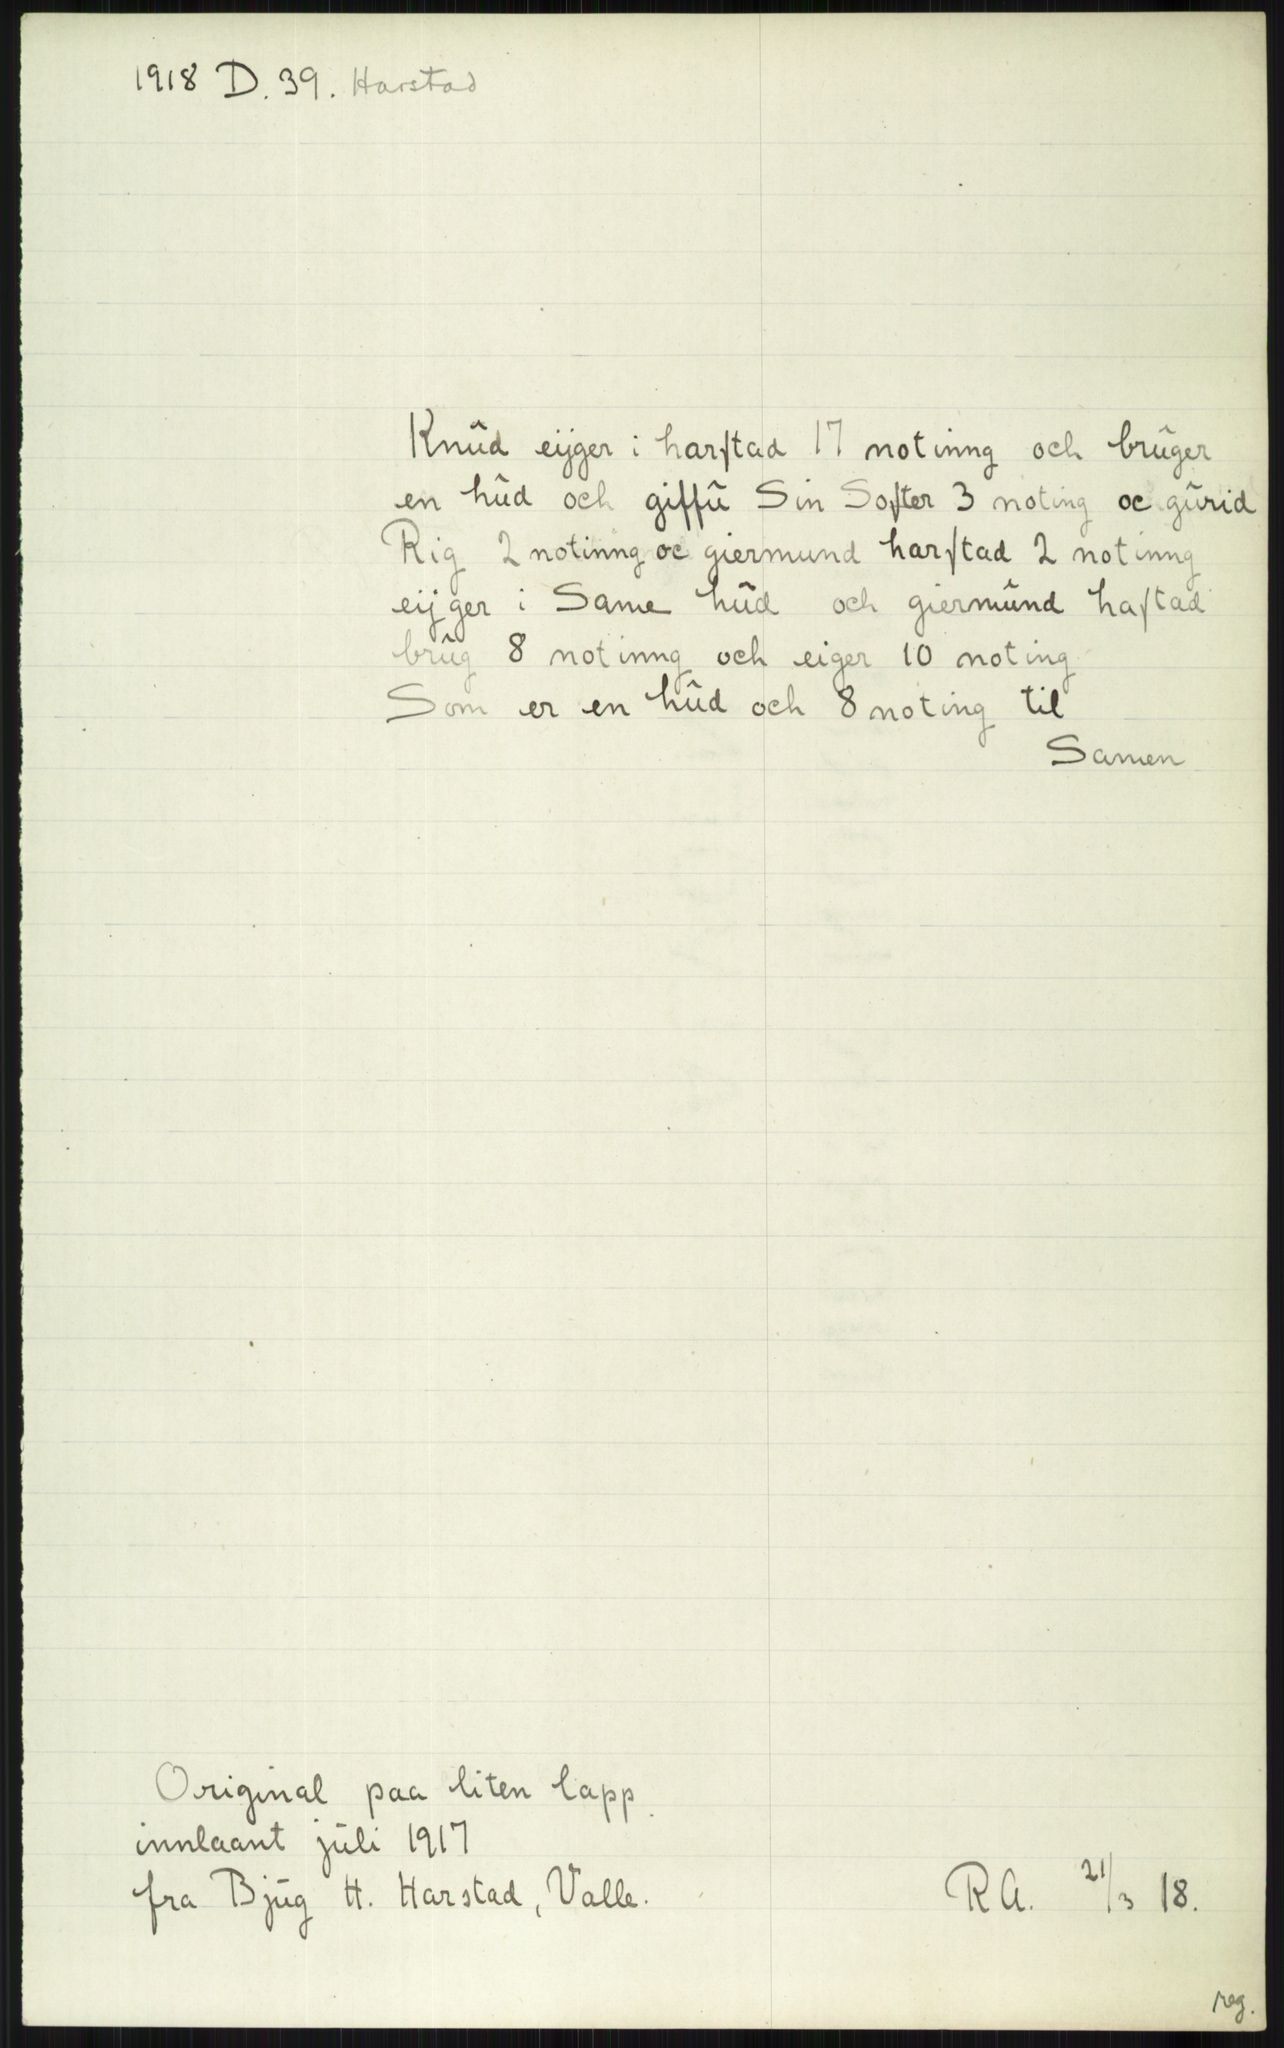 1918 D. 39. Harstad
Knûd eijger i harſtad 17 notinng och brûger
en hûd och giffû Sin Soſter 3 noting oc gûrid
Rig 2 notinng oc giermund harſtad 2 notinng
eijger i Same hûd och giermûnd haſtad
brûg 8 notinng och eiger 10 noting
Som er en hûd och 8 noting til
Samen
Original paa liten lapp
innlaant jûli 1917
fra Bjûg H. Harstad, Valle.
RA. 21/3 18.
reg.